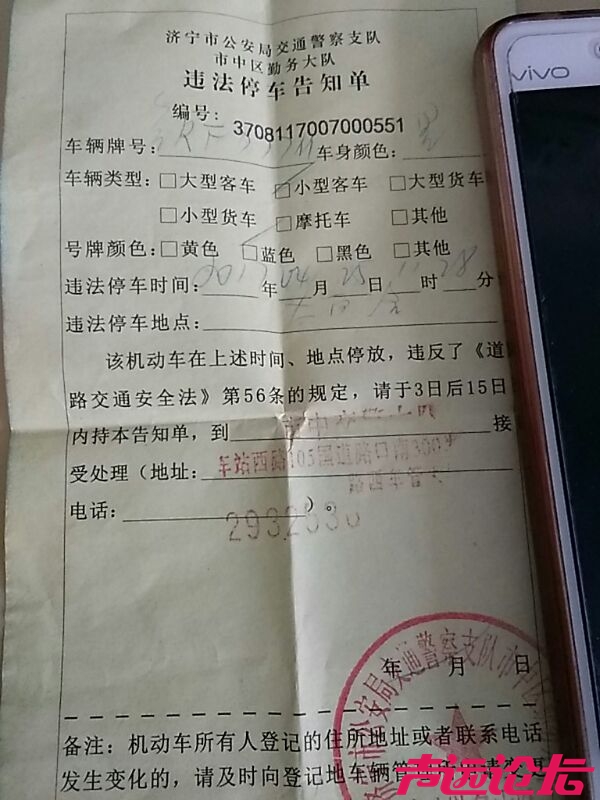 济宁市公安局交通警察支队
市中区勤务大队
违法停车告知单
编号:3708117007000551
车辆牌号: 车身颜色: 黑
车辆类型:□大型客车 □小型客车 □大型货车
□小型货车 □摩托车 □其他
号牌颜色:□黄色 □蓝色 □黑色 □其他
违法停车时间:2017年04月25日11时28分
违法停车地点:
该机动车在上述时间、地点停放,违反了《道
路交通安全法》第56条的规定,请于3日后15日
内持本告知单,到 接
受处理(地址:车站西路105国道路口南300米
路西车管大
电话: )。
2932530
年 月 日
备注:机动车所有人登记的住所地址或者联系电话
发生变化的,请及时向登记地车辆管
vivo
声远论坛